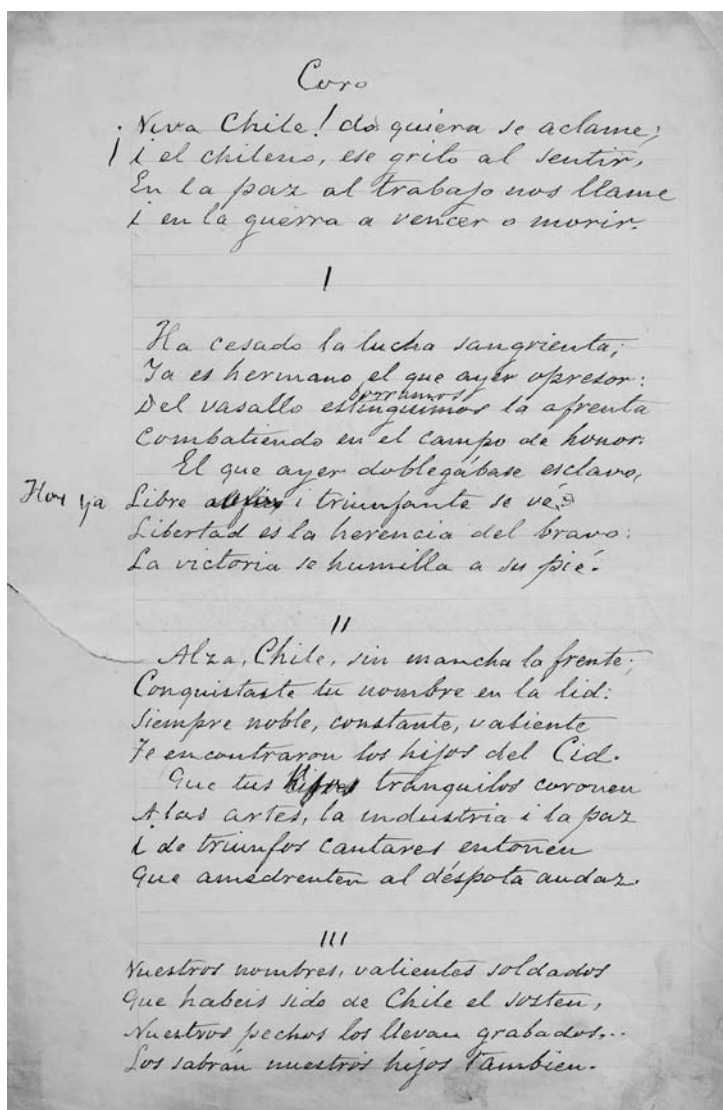 Coro
¡Viva Chile! do quiera se aclame;
i el chileno, ese grito al sentir,
En la paz al trabajo nos llame
i en la guerra a vencer o morir.
I
Ha cesado la lucha sangrienta;
Ya es hermano el que ayer opresor:
borramos
Del vasallo estinguimos la afrenta
Combatiendo en el campo de honor.
El que ayer doblegábase esclavo,
Hoy ya Libre al fin, i triunfante se vé;
Libertad es la herencia del bravo:
La victoria se humilla a su pié.
II
Alza, Chile, sin mancha la frente;
Conquistaste tu nombre en la lid:
Siempre noble, constante, valiente
Te encontraron los hijos del Cid.
Que tus hijos tranquilos coronen
A las artes, la industria i la paz
i de triunfos cantares entonen
Que amedrenten al déspota audaz.
III
Vuestros nombres, valientes soldados
Que habeis sido de Chile el sosten,
Nuestros pechos los llevan grabados...
Los sabrán nuestros hijos tambien.